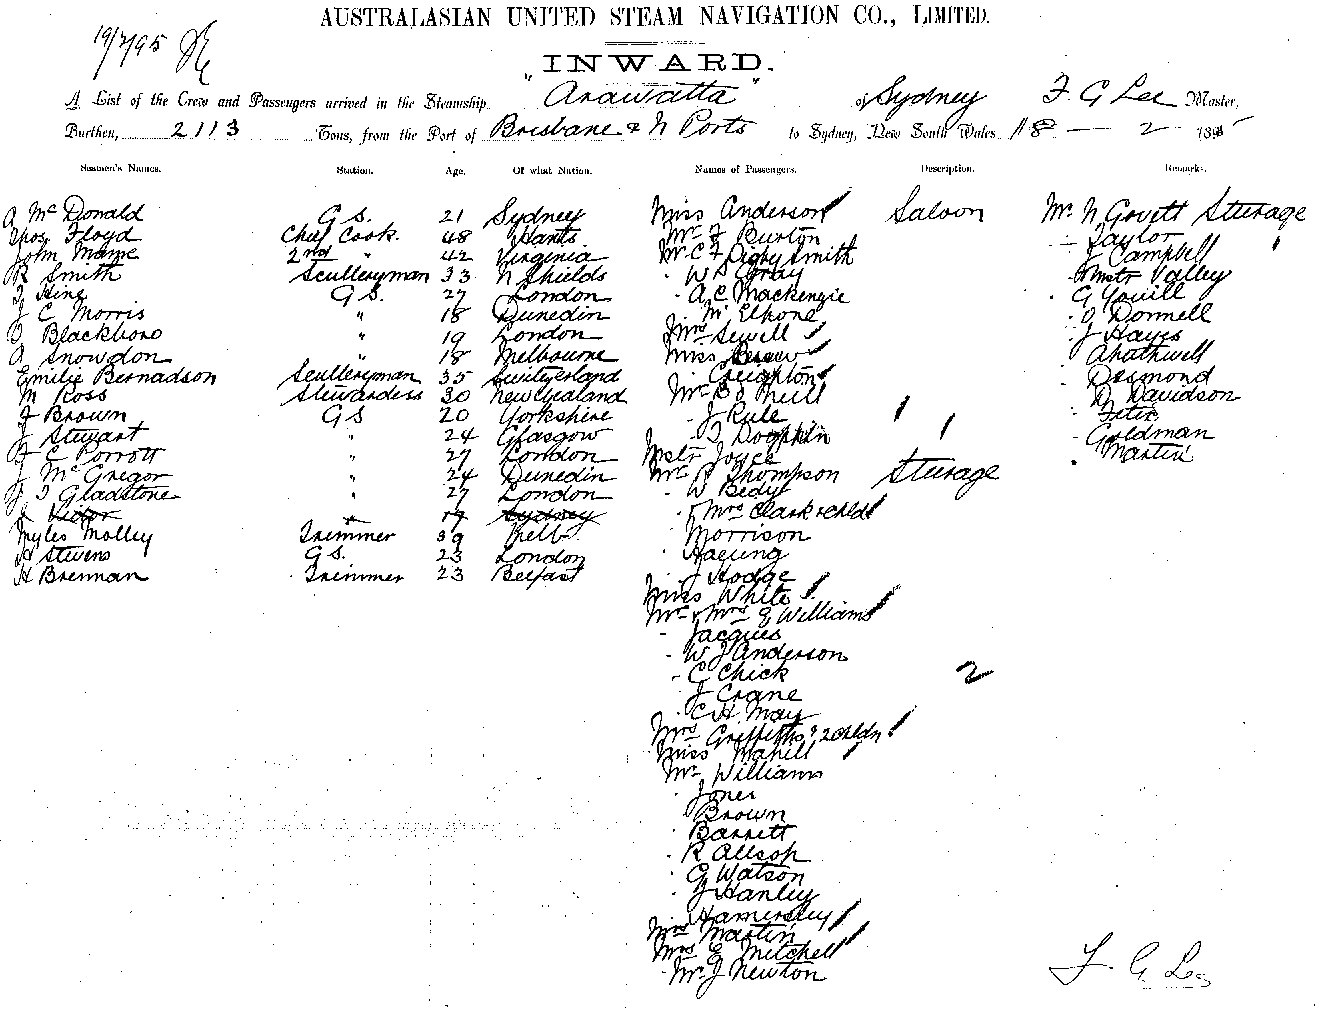 AUSTRALASIAN UNITED STEAM NAVIGATION CO., LIMITED.
19/2/95
INWARD.
A List of the Crew and Passengers arrived in the Steamship "Arawatta" of Sydney F G Lee Master,
Burthen, 2113 Tons, from the Port of Brisbane & N Ports to Sydney, New South Wales 18 - 2 1895
Seamen's Names. Station. Age. Of what Nation. Names of Passengers. Description. Remarks.
A McDonald G S. 21 Sydney Miss Anderson Saloon Mr N Govett Sturage
Thos Floyd Chief Cook. 48 Hants Mr F Burton - Taylor
John Mame 2nd " 42 Virginia Mr C F Digby Smith J Campbell
R Smith Sculleryman 33 N Shields - W S Gray - Mstr Valley
J Hine G S. 27 London - A C Mackenzie - G Youill
J C Morris " 18 Dunedin - McElhone - O Donnell
Blackboro 19 London Mrs Sewell - J Hayes
A Snowdon " 18 Melbourne Miss
Emilie Bernadson Sculleryman 35 Switzerland - Creighton - Desmond
M Ross Stewardess 30 New Zealand Mr B O'Neill - D Davidson
J Brown G S 20 Yorkshire - J Rule
J Stewart " 24 Glasgow - Goldman
F C Porrott " 27 London Mstr Joyce - Martin
J McGregor " 24 Dunedin Mr R Thompson Sturage
J Gladstone " 27 London - W Bedy
J Victor " 19 Sydney - & Mrs Clark & Child
Myles Molley Trimmer 39 Melb. - Morrison
H Stevens G S. 23 London
H Brennan Trimmer 23 Belfast - J Hodge
Miss White
Mr & Mrs G Williams
- Jacques
- W J Anderson
- C Chick 2
- J Crane
- C H May
Mrs Griffiths & 2 Chldn
Miss Mahill
Mr Williams
- Jones
- Brown
- Barrett
- R Allsop
- G Watson
- J Hanley
- Hamersley
Mrs Martin
Mrs E Mitchell
Mr J Newton
F. G Lee